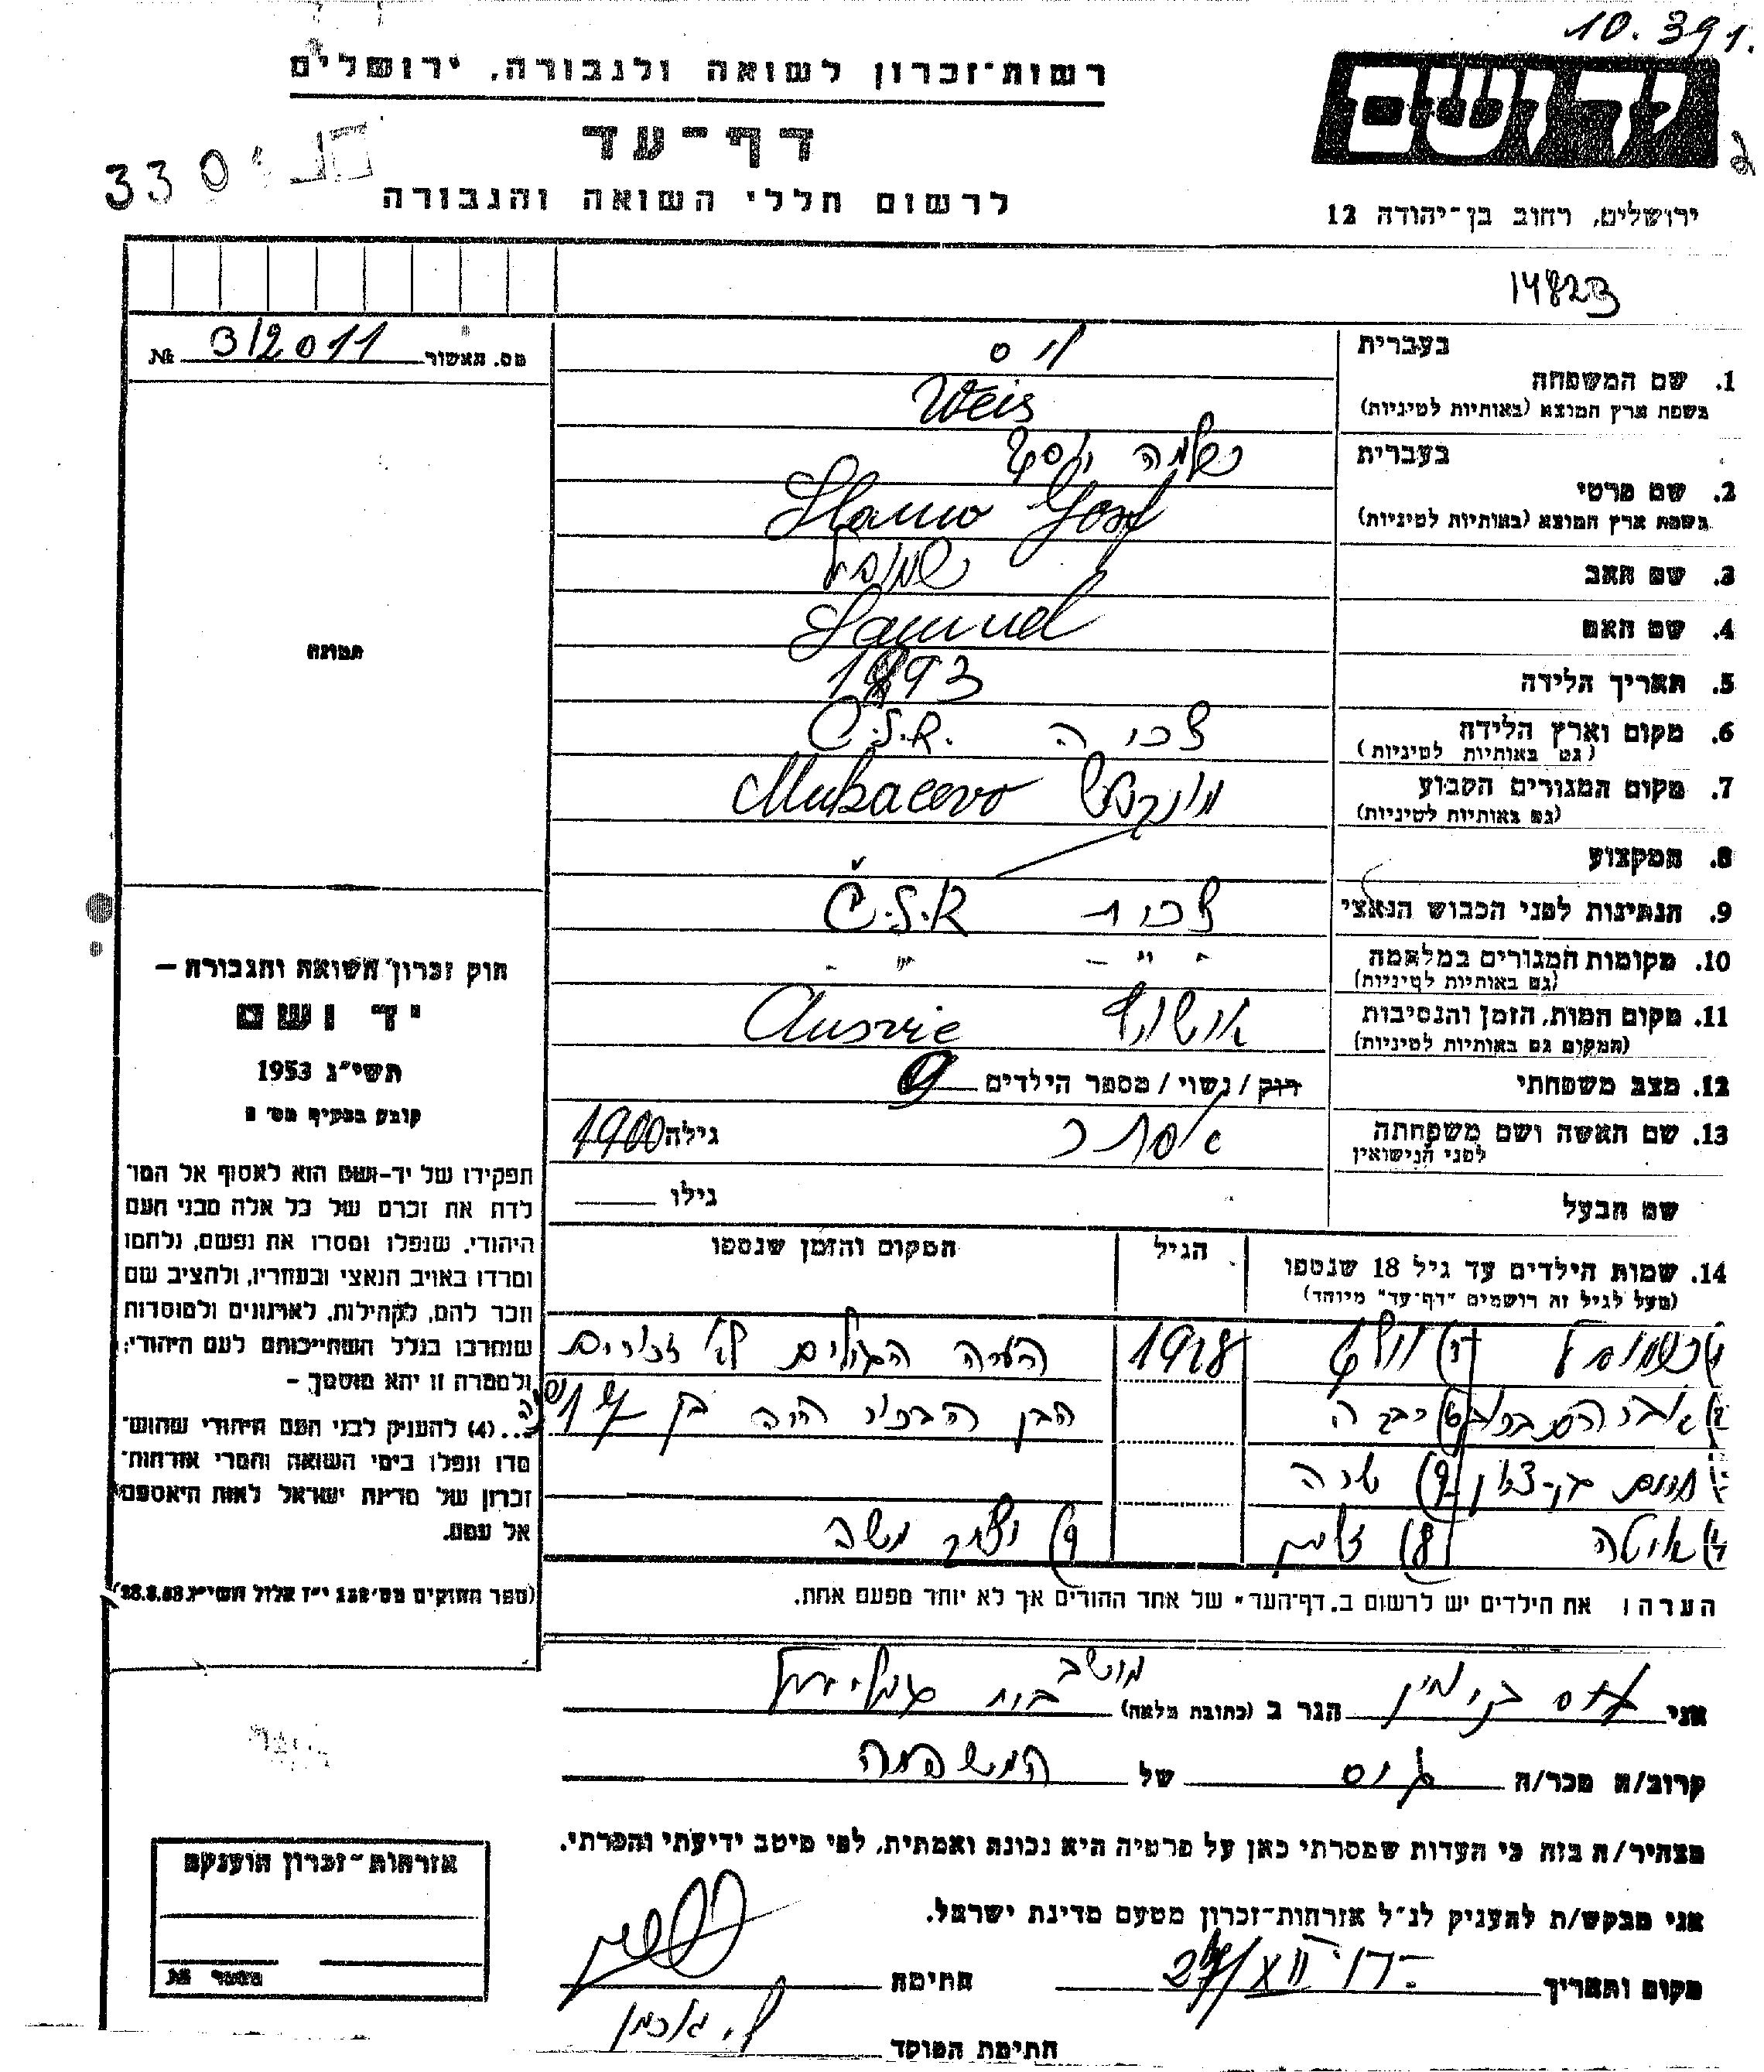 10.391.
רשות־זכרון לשואה ולגבורה, ירושלים
ידושם
דף־עד
330
לרשום חללי השואה והגבורה
ירושלים, רחוב בן־יהודה 12
14823
מס. תאשור № 312011
בעברית
ויס
1. שם המשפחה
בשפת ארץ המוצא (באותיות לטיניות) Weis
בעברית
שלמה יוסף
2. שם פרטי
בשפת ארץ המוצא (באותיות לטיניות) Slamo Josef
3. שם האב שמואל
4. שם האם Samuel
תמונה
5. תאריך הלידה 1893
6. מקום וארץ הלידה צכיה Č.S.R.
(גם באותיות לטיניות)
7. מקום המגורים הקבוע מונקטש Mukacevo
(גם באותיות לטיניות)
8. המקצוע
9. הנתינות לפני הכבוש הנאצי צכית Č.S.R
10. מקומות המגורים במלחמה - " - - " -
(גם באותיות לטיניות)
11. מקום המות, הזמן והנסיבות אושויץ Ausvic
(המקום גם באותיות לטיניות)
12. מצב משפחתי רוק / נשוי / מספר הילדים 9
13. שם האשה ושם משפחתה אסתר גילה 1900
לפני הנישואין
שם הבעל גילו
14. שמות הילדים עד גיל 18 שנספו
(מעל לגיל זה רושמים "דף־עד" מיוחד)
הגיל
המקום והזמן שנספו
1) שמואל 5) וולף 1928 הערה הגילים לא זכורים
2) אברהם 6) רבקה הבן הבכור היה בן
3) חיים בן־ציון 7) שרה
4) איטה 8) 9) יצחק משה
הערה: את הילדים יש לרשום ב„דף־העד" של אחד ההורים אך לא יותר מפעם אחת.
חוק זכרון השואה והגבורה –
יד ושם
תשי"ג 1953
קובע בסעיף מס' 2
תפקידו של יד-ושם הוא לאסוף אל המו־
לדת את זכרם של כל אלה מבני העם
היהודי, שנפלו ומסרו את נפשם, נלחמו
ומרדו באויב הנאצי ובעוזריו, ולהציב שם
וזכר להם, לקהילות, לארגונים ולמוסדות
שנחרבו בגלל השתייכותם לעם היהודי;
ולמטרה זו יהא מוסמך –
...(4) להעניק לבני העם היהודי שהוש־
מדו ונפלו בימי השואה והמרי אזרחות־
זכרון של מדינת ישראל לאות היאספם
אל עמם.
(ספר החוקים מס' 132 י"ז אלול תשי"ג 28.8.53)
אני ויס בנימין הגר ב (כתובת מלאה) מושב בית גמליאל
קרוב/ה מכר/ה גיס של המשפחה
מצהיר/ה בזה כי העדות שמסרתי כאן על פרטיה היא נכונה ואמתית, לפי מיטב ידיעתי והכרתי.
אני מבקש/ת להעניק לנ"ל אזרחות־זכרון מטעם מדינת ישראל.
מקום ותאריך חתימה
חתימת המוסד
אזרחות־זכרון הוענקה
מספר №